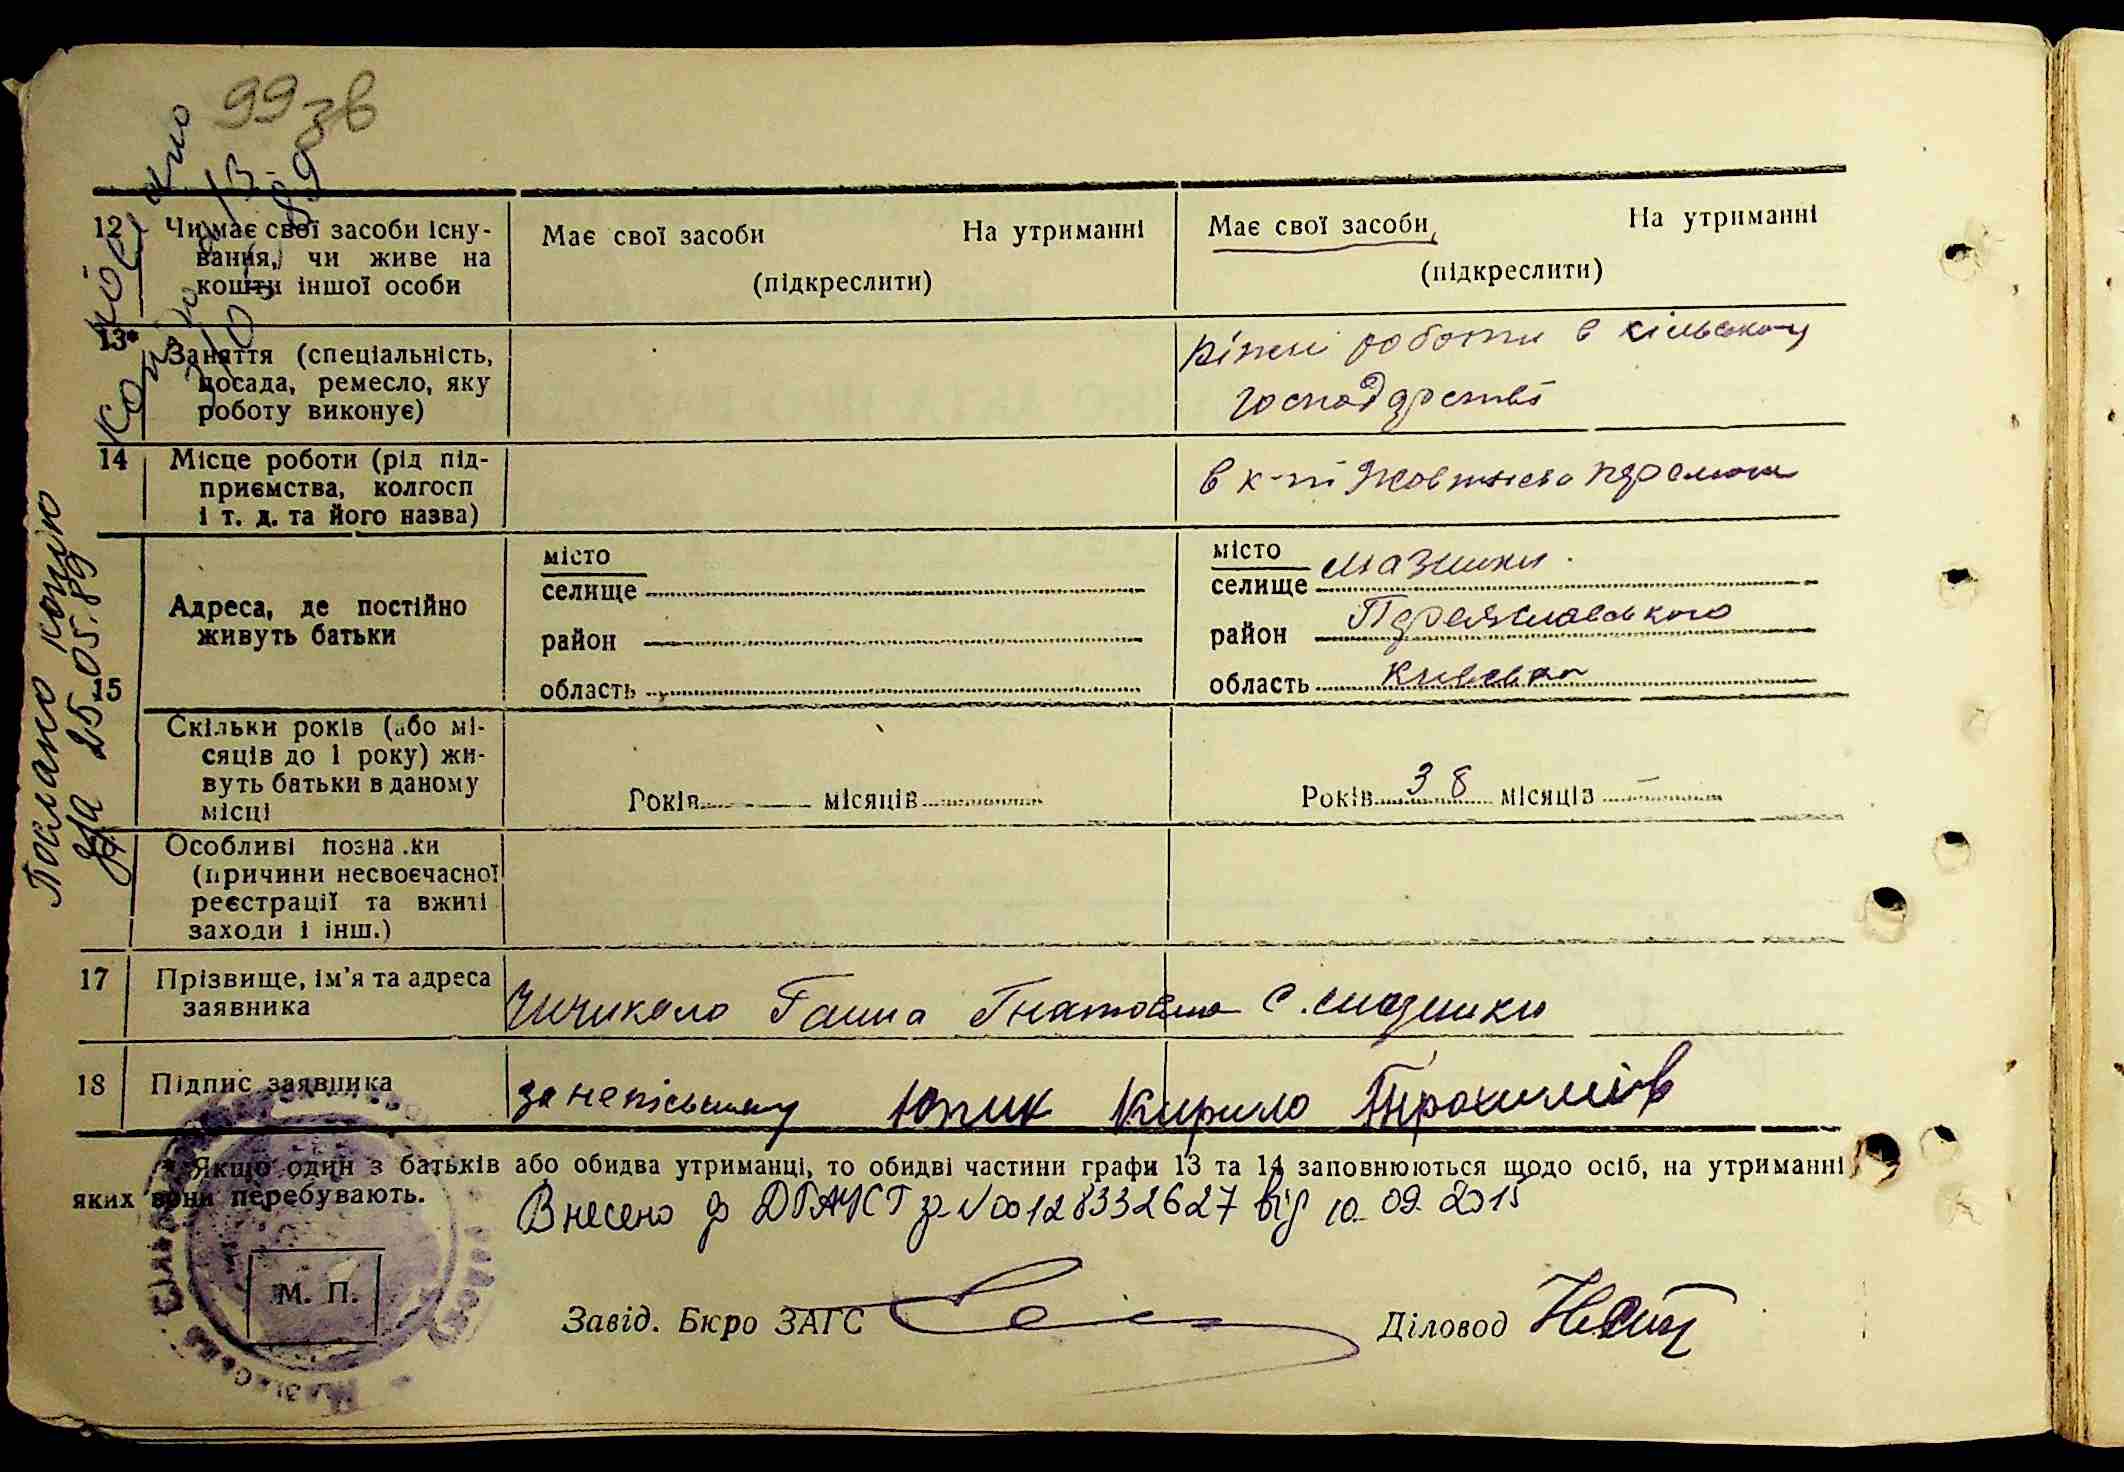 99зв
12 Чи має свої засоби існу-
вання, чи живе на
кошти іншої особи
Має свої засоби На утриманні
(підкреслити)
Має свої засоби На утриманні
(підкреслити)
13* Заняття (спеціальність,
посада, ремесло, яку
роботу виконує)
Різні роботи в сільському
господарстві
14 Місце роботи (рід під-
приємства, колгосп
і т. д. та його назва)
в к-пі Жовтнева
15 Адреса, де постійно
живуть батьки
місто
селище
район
область
місто
селище Мазінки
район Переяславського
область Київська
Скільки років (або мі-
сяців до 1 року) жи-
вуть батьки в даному
місці
Років місяців
Років 38 місяців
Особливі позначки
(причини несвоєчасної
реєстрації та вжиті
заходи і інш.)
17 Прізвище, ім'я та адреса
заявника
Чичикало Ганна Гнатовна с. Мазінки
18 Підпис заявника
за неписьмену Юпик Кирило Трохимів
* Якщо один з батьків або обидва утриманці, то обидві частини графи 13 та 14 заповнюються щодо осіб, на утриманні
яких вони перебувають.
Внесено до ДРАЦСГ за №00128332627 від 10.09.2015
М. П.
Завід. Бюро ЗАГС Діловод
Послано копію
За 25.05.89